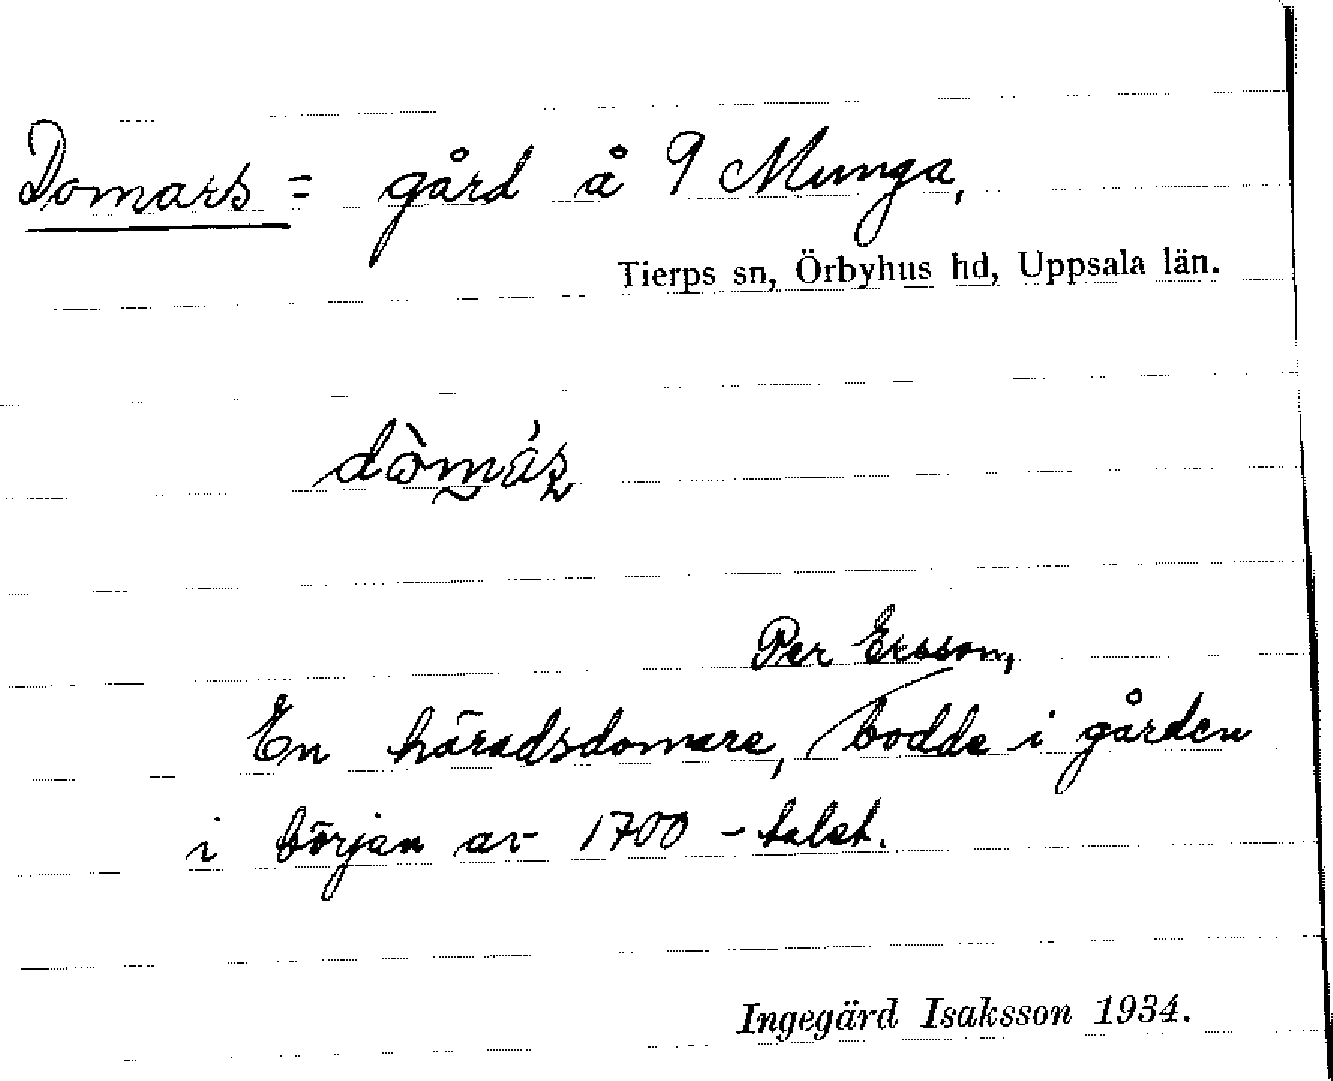 Domars = gård å 9 Munga,
Tierps sn, Örbyhus hd, Uppsala län.
Per Ersson,
En häradsdomare, bodde i gården
i början av 1700-talet.
Ingegärd Isaksson 1934.